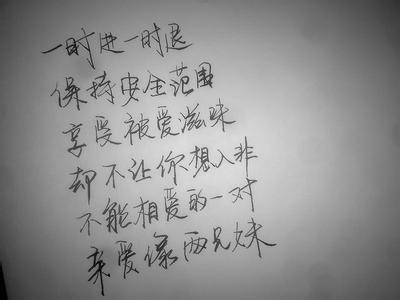 一时进一时退
保持安全范围
享受被爱滋味
却不让你想入非
不能相爱的一对
亲爱像两兄妹